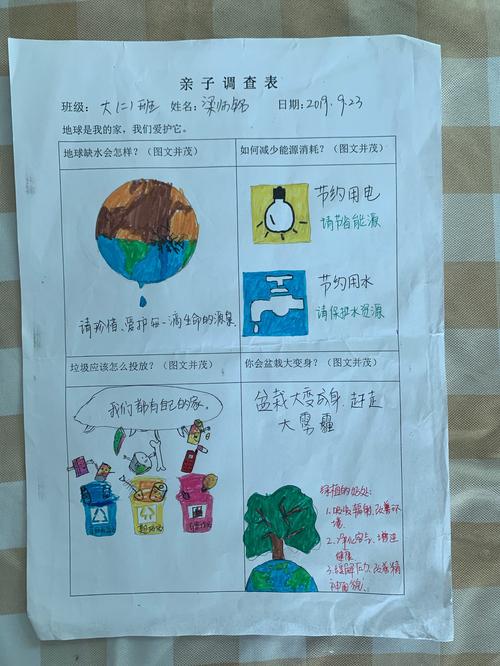 亲子调查表
班级：大(二)班 姓名：梁 日期：2019.9.23
地球是我的家，我们爱护它。
地球缺水会怎样？（图文并茂）
请珍惜、爱护每一滴生命的源泉
如何减少能源消耗？（图文并茂）
节约用电
请节省能源
节约用水
请保护水资源
垃圾应该怎么投放？（图文并茂）
我们都有自己的家。
你会盆栽大变身？（图文并茂）
盆栽大变身,赶走
大雾霾
绿植的好处:
1.吸收辐射,改善环
境。
2.净化空气、增进
健康
3.缓解压力、改善精
神面貌。